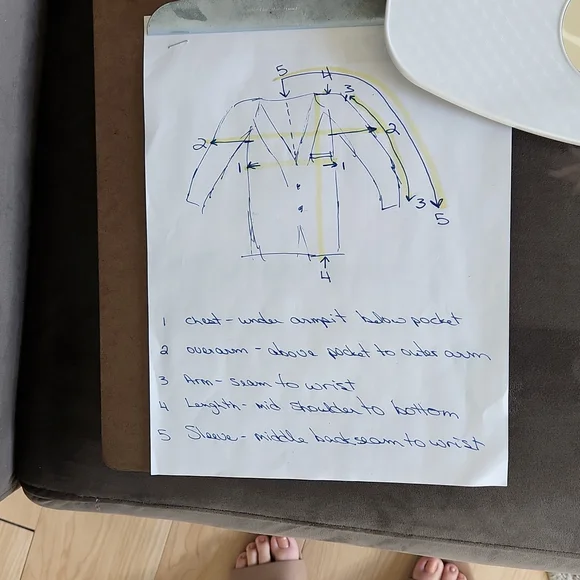 5 4
3
2 2
1 1
3
5
4
1 chest - under armpit below pocket
2 overarm - above pocket to outer arm
3 Arm - seam to wrist
4 Length - mid shoulder to bottom
5 Sleeve - middle back seam to wrist